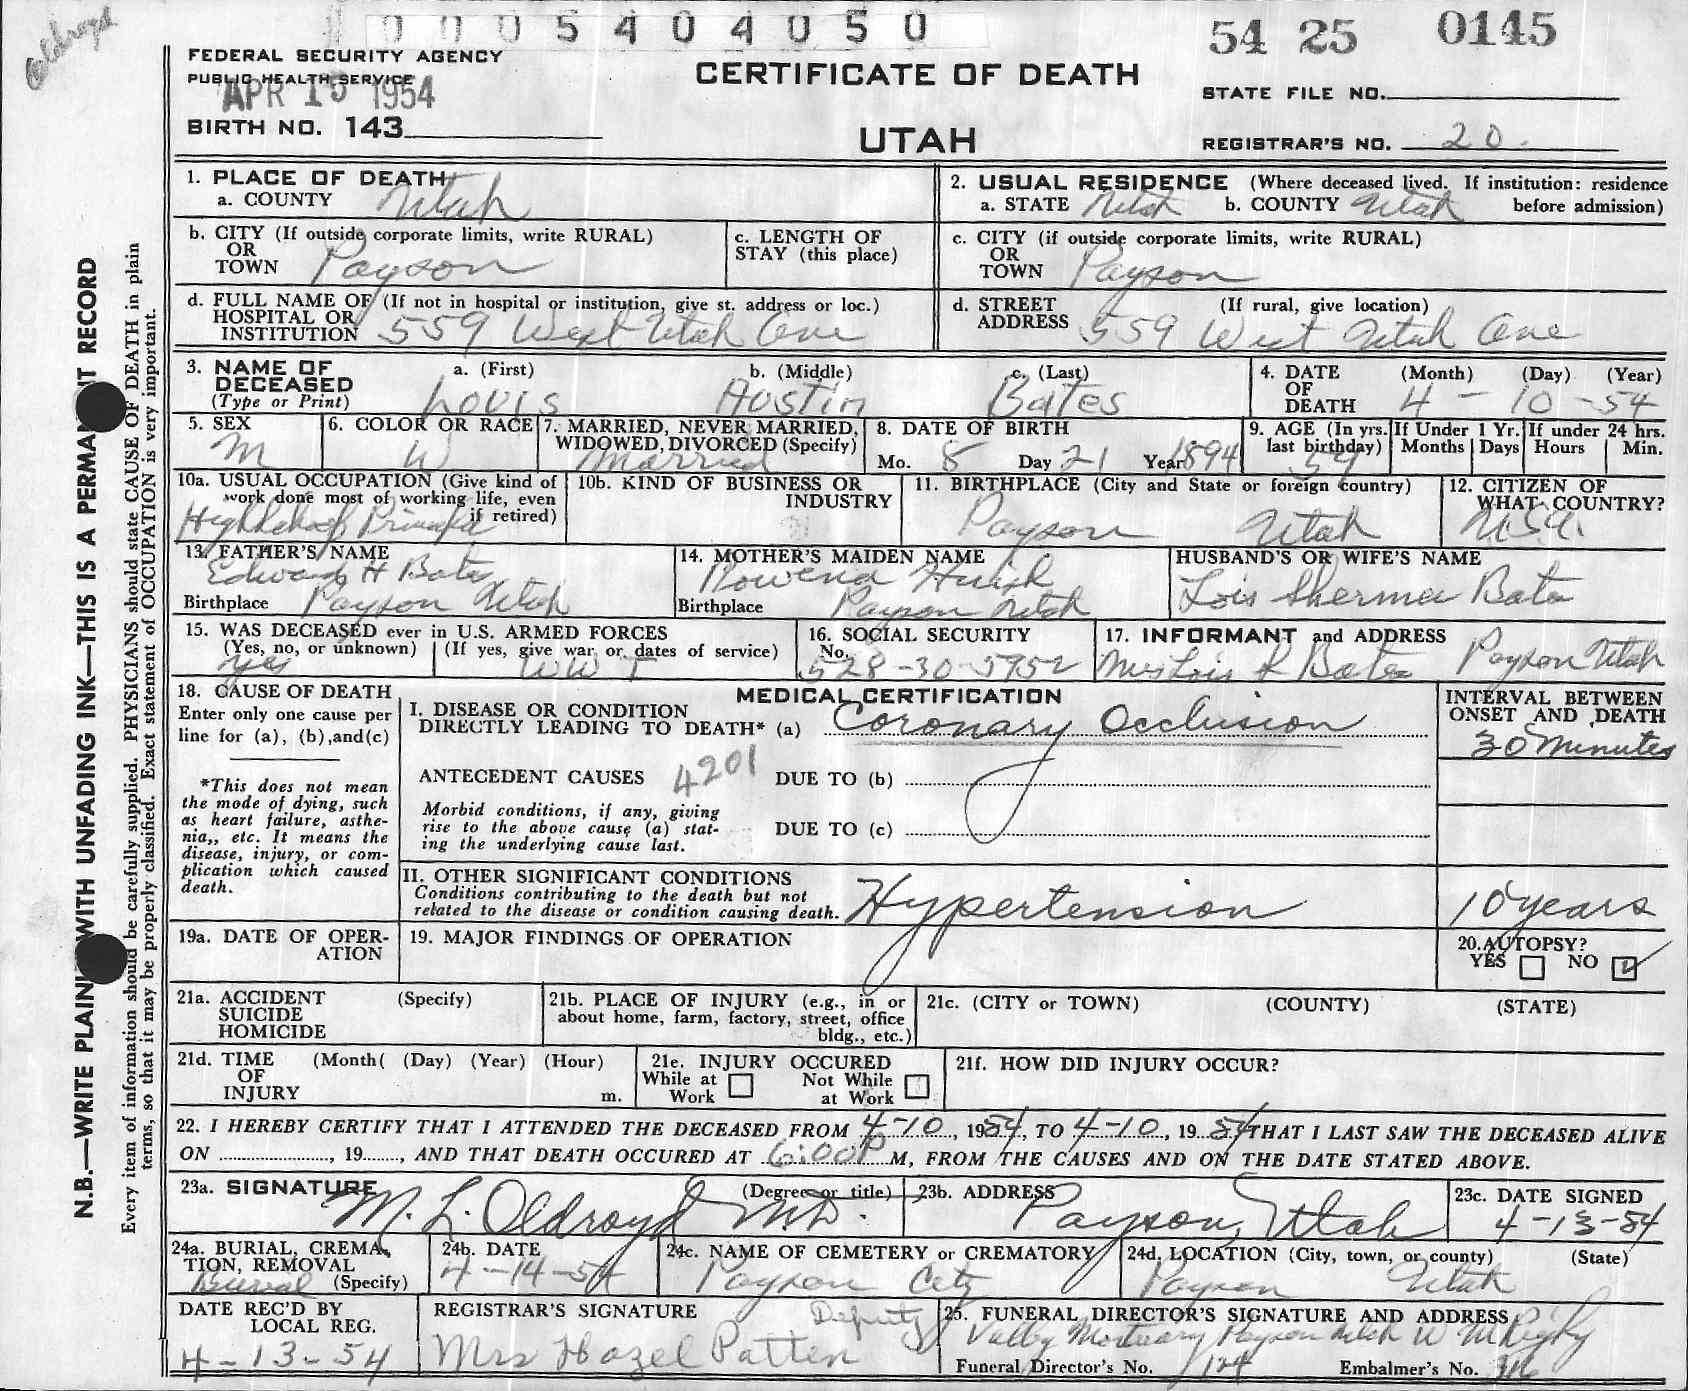 Oldroyd
0005404050
54 25 0145
FEDERAL SECURITY AGENCY
PUBLIC HEALTH SERVICE
APR 15 1954
BIRTH NO. 143
CERTIFICATE OF DEATH
UTAH
STATE FILE NO.
REGISTRAR'S NO. 20.
1. PLACE OF DEATH
a. COUNTY Utah
2. USUAL RESIDENCE (Where deceased lived. If institution: residence before admission)
a. STATE Utah b. COUNTY Utah
b. CITY (If outside corporate limits, write RURAL)
OR
TOWN Payson
c. LENGTH OF
STAY (this place)
c. CITY (if outside corporate limits, write RURAL)
OR
TOWN Payson
d. FULL NAME OF (If not in hospital or institution, give st. address or loc.)
HOSPITAL OR
INSTITUTION 559 West Utah Ave
d. STREET (If rural, give location)
ADDRESS 559 West Utah Ave
3. NAME OF
DECEASED
(Type or Print)
a. (First) b. (Middle) c. (Last)
Louis Austin Bates
4. DATE
OF
DEATH
(Month) (Day) (Year)
4 - 10 - 54
5. SEX
M
6. COLOR OR RACE
W
7. MARRIED, NEVER MARRIED,
WIDOWED, DIVORCED (Specify)
Married
8. DATE OF BIRTH
Mo. 8 Day 21 Year 1894
9. AGE (In yrs.
last birthday)
59
If Under 1 Yr.
Months Days
If under 24 hrs.
Hours Min.
10a. USUAL OCCUPATION (Give kind of
work done most of working life, even
if retired)
10b. KIND OF BUSINESS OR
INDUSTRY
11. BIRTHPLACE (City and State or foreign country)
Payson Utah
12. CITIZEN OF
WHAT COUNTRY?
USA.
13. FATHER'S NAME
Edward H Bates
Birthplace Payson Utah
14. MOTHER'S MAIDEN NAME
Rowena Huish
Birthplace Payson Utah
HUSBAND'S OR WIFE'S NAME
Lois Sherman Bates
15. WAS DECEASED ever in U.S. ARMED FORCES
(Yes, no, or unknown) (If yes, give war or dates of service)
yes WW I
16. SOCIAL SECURITY
No.
528-30-5952
17. INFORMANT and ADDRESS
Mrs Lois S Bates Payson Utah
18. CAUSE OF DEATH
Enter only one cause per
line for (a), (b),and(c)
*This does not mean
the mode of dying, such
as heart failure, asthe-
nia,, etc. It means the
disease, injury, or com-
plication which caused
death.
MEDICAL CERTIFICATION
I. DISEASE OR CONDITION
DIRECTLY LEADING TO DEATH* (a) Coronary Occlusion
ANTECEDENT CAUSES 4201 DUE TO (b)
Morbid conditions, if any, giving
rise to the above cause (a) stat-
ing the underlying cause last.
DUE TO (c)
INTERVAL BETWEEN
ONSET AND DEATH
30 Minutes
II. OTHER SIGNIFICANT CONDITIONS
Conditions contributing to the death but not
related to the disease or condition causing death.
Hypertension
10 years
19a. DATE OF OPER-
ATION
19. MAJOR FINDINGS OF OPERATION
20. AUTOPSY?
YES NO
21a. ACCIDENT (Specify)
SUICIDE
HOMICIDE
21b. PLACE OF INJURY (e.g., in or
about home, farm, factory, street, office
bldg., etc.)
21c. (CITY or TOWN) (COUNTY) (STATE)
21d. TIME (Month( (Day) (Year) (Hour)
OF
INJURY m.
21e. INJURY OCCURED
While at Not While
Work at Work
21f. HOW DID INJURY OCCUR?
22. I HEREBY CERTIFY THAT I ATTENDED THE DECEASED FROM 4-10, 1954, TO 4-10, 1954 THAT I LAST SAW THE DECEASED ALIVE
ON , 19 , AND THAT DEATH OCCURED AT 6:00P M, FROM THE CAUSES AND ON THE DATE STATED ABOVE.
23a. SIGNATURE (Degree or title)
M. L. Oldroyd MD.
23b. ADDRESS
Payson, Utah
23c. DATE SIGNED
4-13-54
24a. BURIAL, CREMA-
TION, REMOVAL
Burial (Specify)
24b. DATE
4-14-54
24c. NAME OF CEMETERY or CREMATORY
Payson City
24d. LOCATION (City, town, or county) (State)
Payson Utah
DATE REC'D BY
LOCAL REG.
4-13-54
REGISTRAR'S SIGNATURE
Deputy
Mrs Hazel Patten
25. FUNERAL DIRECTOR'S SIGNATURE AND ADDRESS
Valley Mortuary Payson Utah
Funeral Director's No. 124 Embalmer's No.
N.B.—WRITE PLAIN WITH UNFADING INK—THIS IS A PERMA T RECORD
Every item of information should be carefully supplied. PHYSICIANS should state CAUSE OF DEATH in plain
terms, so that it may be properly classified. Exact statement of OCCUPATION is very important.